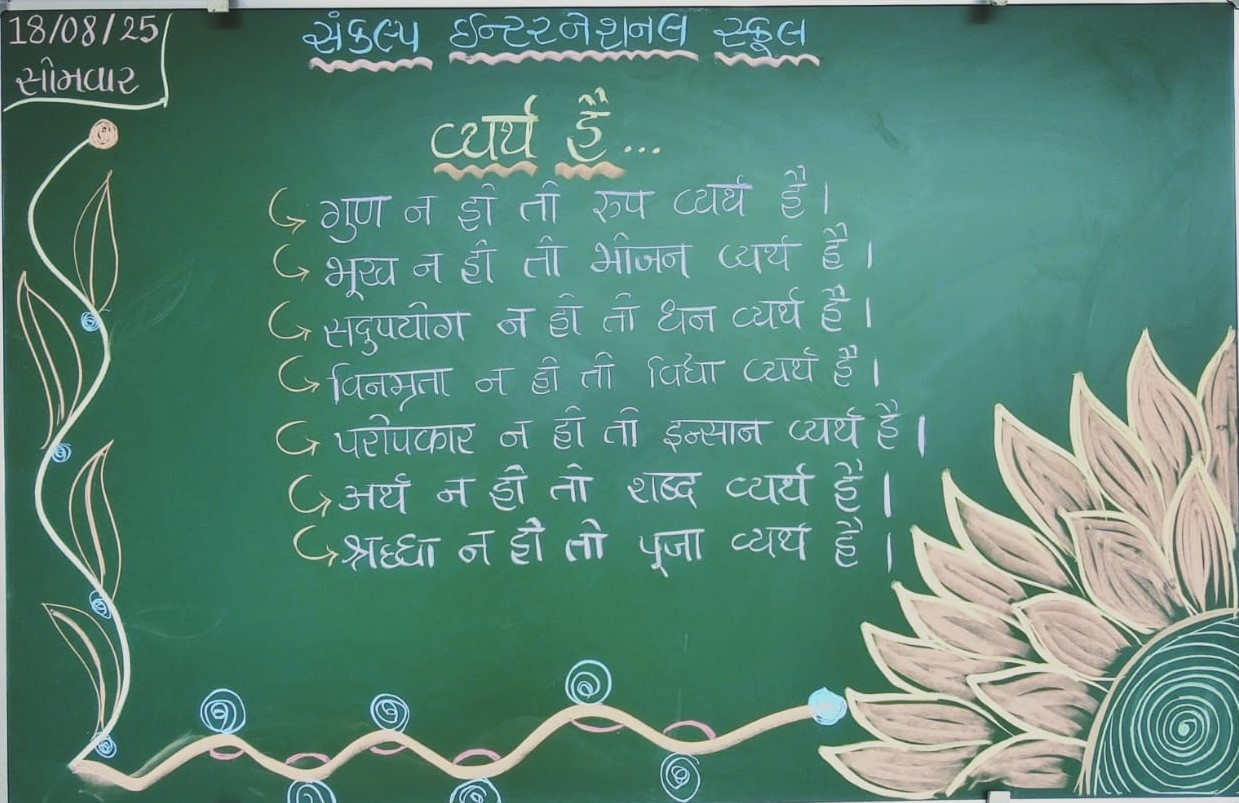 18/08/25
સોમવાર
સંકલ્પ ઈન્ટરનેશનલ સ્કૂલ
व्यर्थ है...
गुण न हो तो रुप व्यर्थ है।
भूख न हो तो भोजन व्यर्थ है।
सदुपयोग न हो तो धन व्यर्थ है।
विनम्रता न हो तो विधा व्यर्थ है।
परोपकार न हो तो इन्सान व्यर्थ है।
अर्थ न हो तो शब्द व्यर्थ है।
श्रध्धा न हो तो पूजा व्यर्थ है।